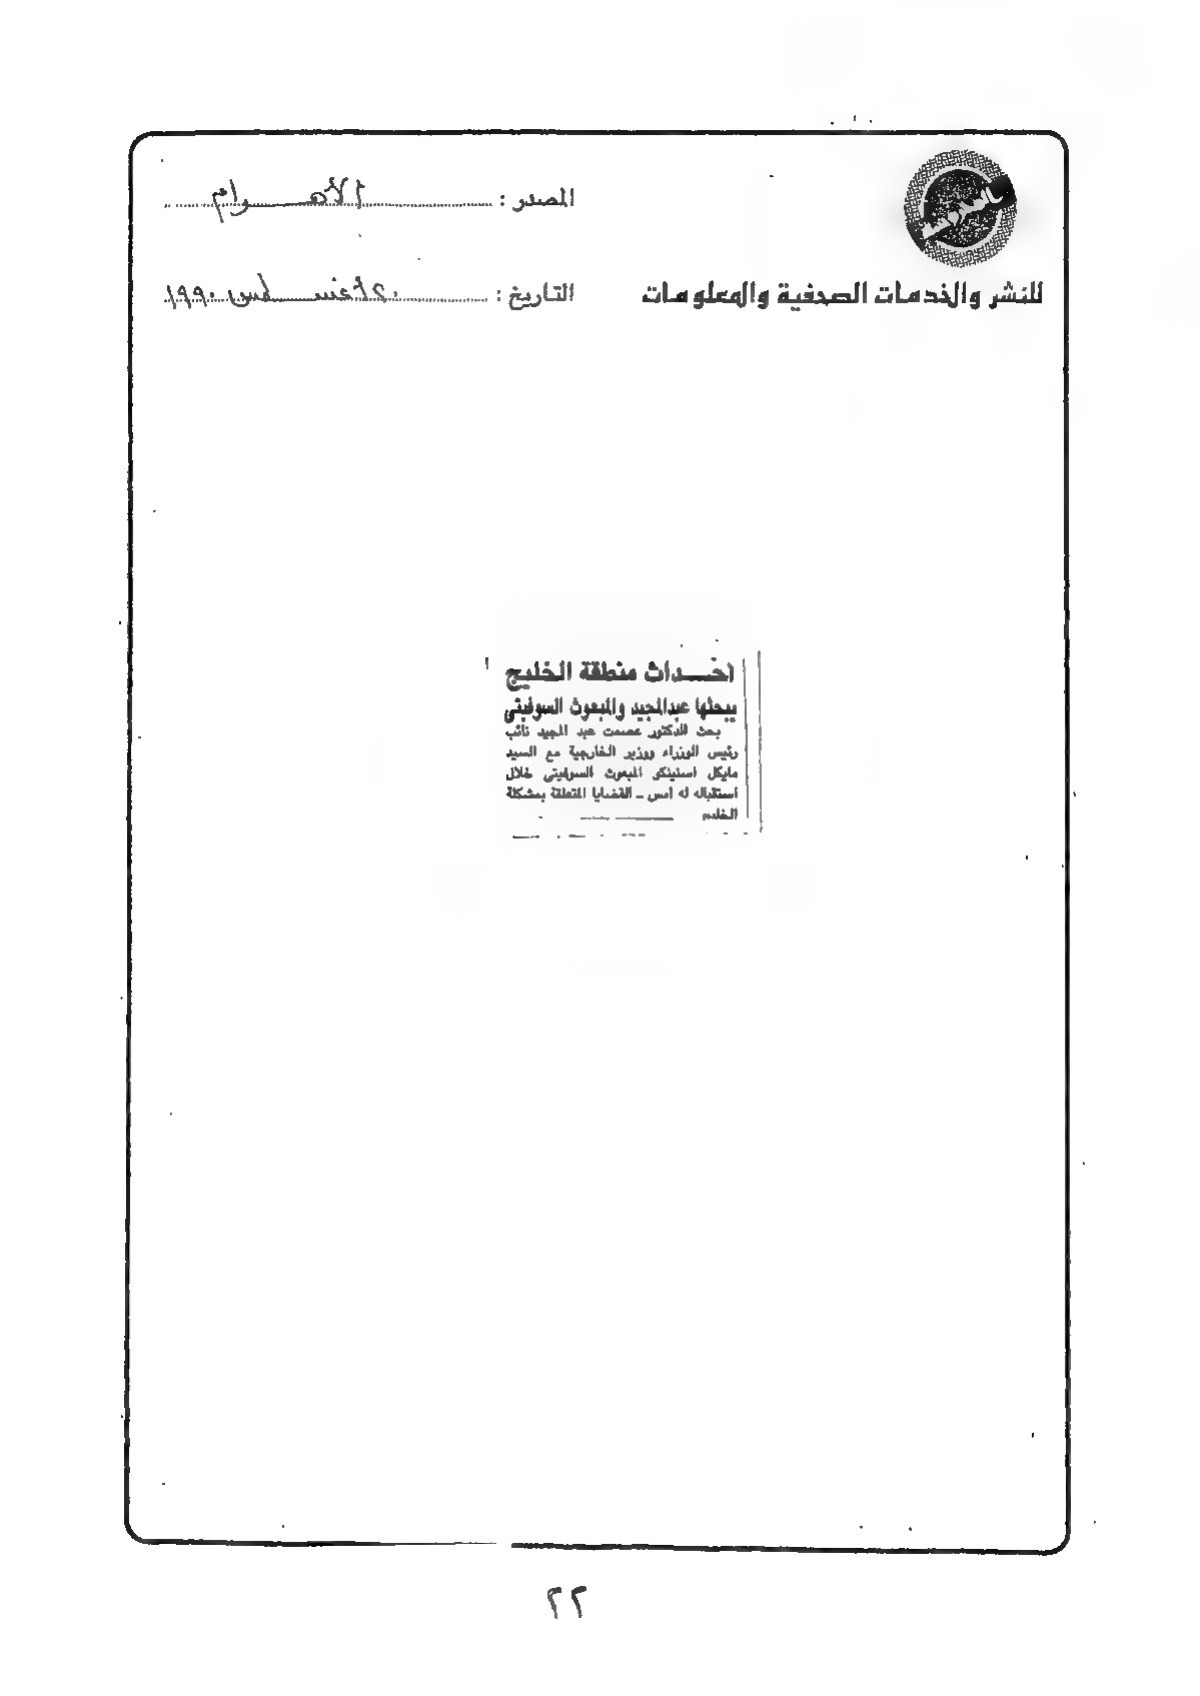 المصدر : الأهـــرام
للنشر والخدمات الصحفية والمعلومات
التاريخ : ٢٠ أغسـطس ١٩٩٠
احـداث منطقة الخليج
يبحثها عبدالمجيد والمبعوث السوفيتى
بحث الدكتور عصمت عبد المجيد نائب
رئيس الوزراء ووزير الخارجية مع السيد
مايكل استينكو المبعوث السوفيتى خلال
استقباله له امس ـ القضايا المتعلقة بمشكلة
الخليج
٢٢